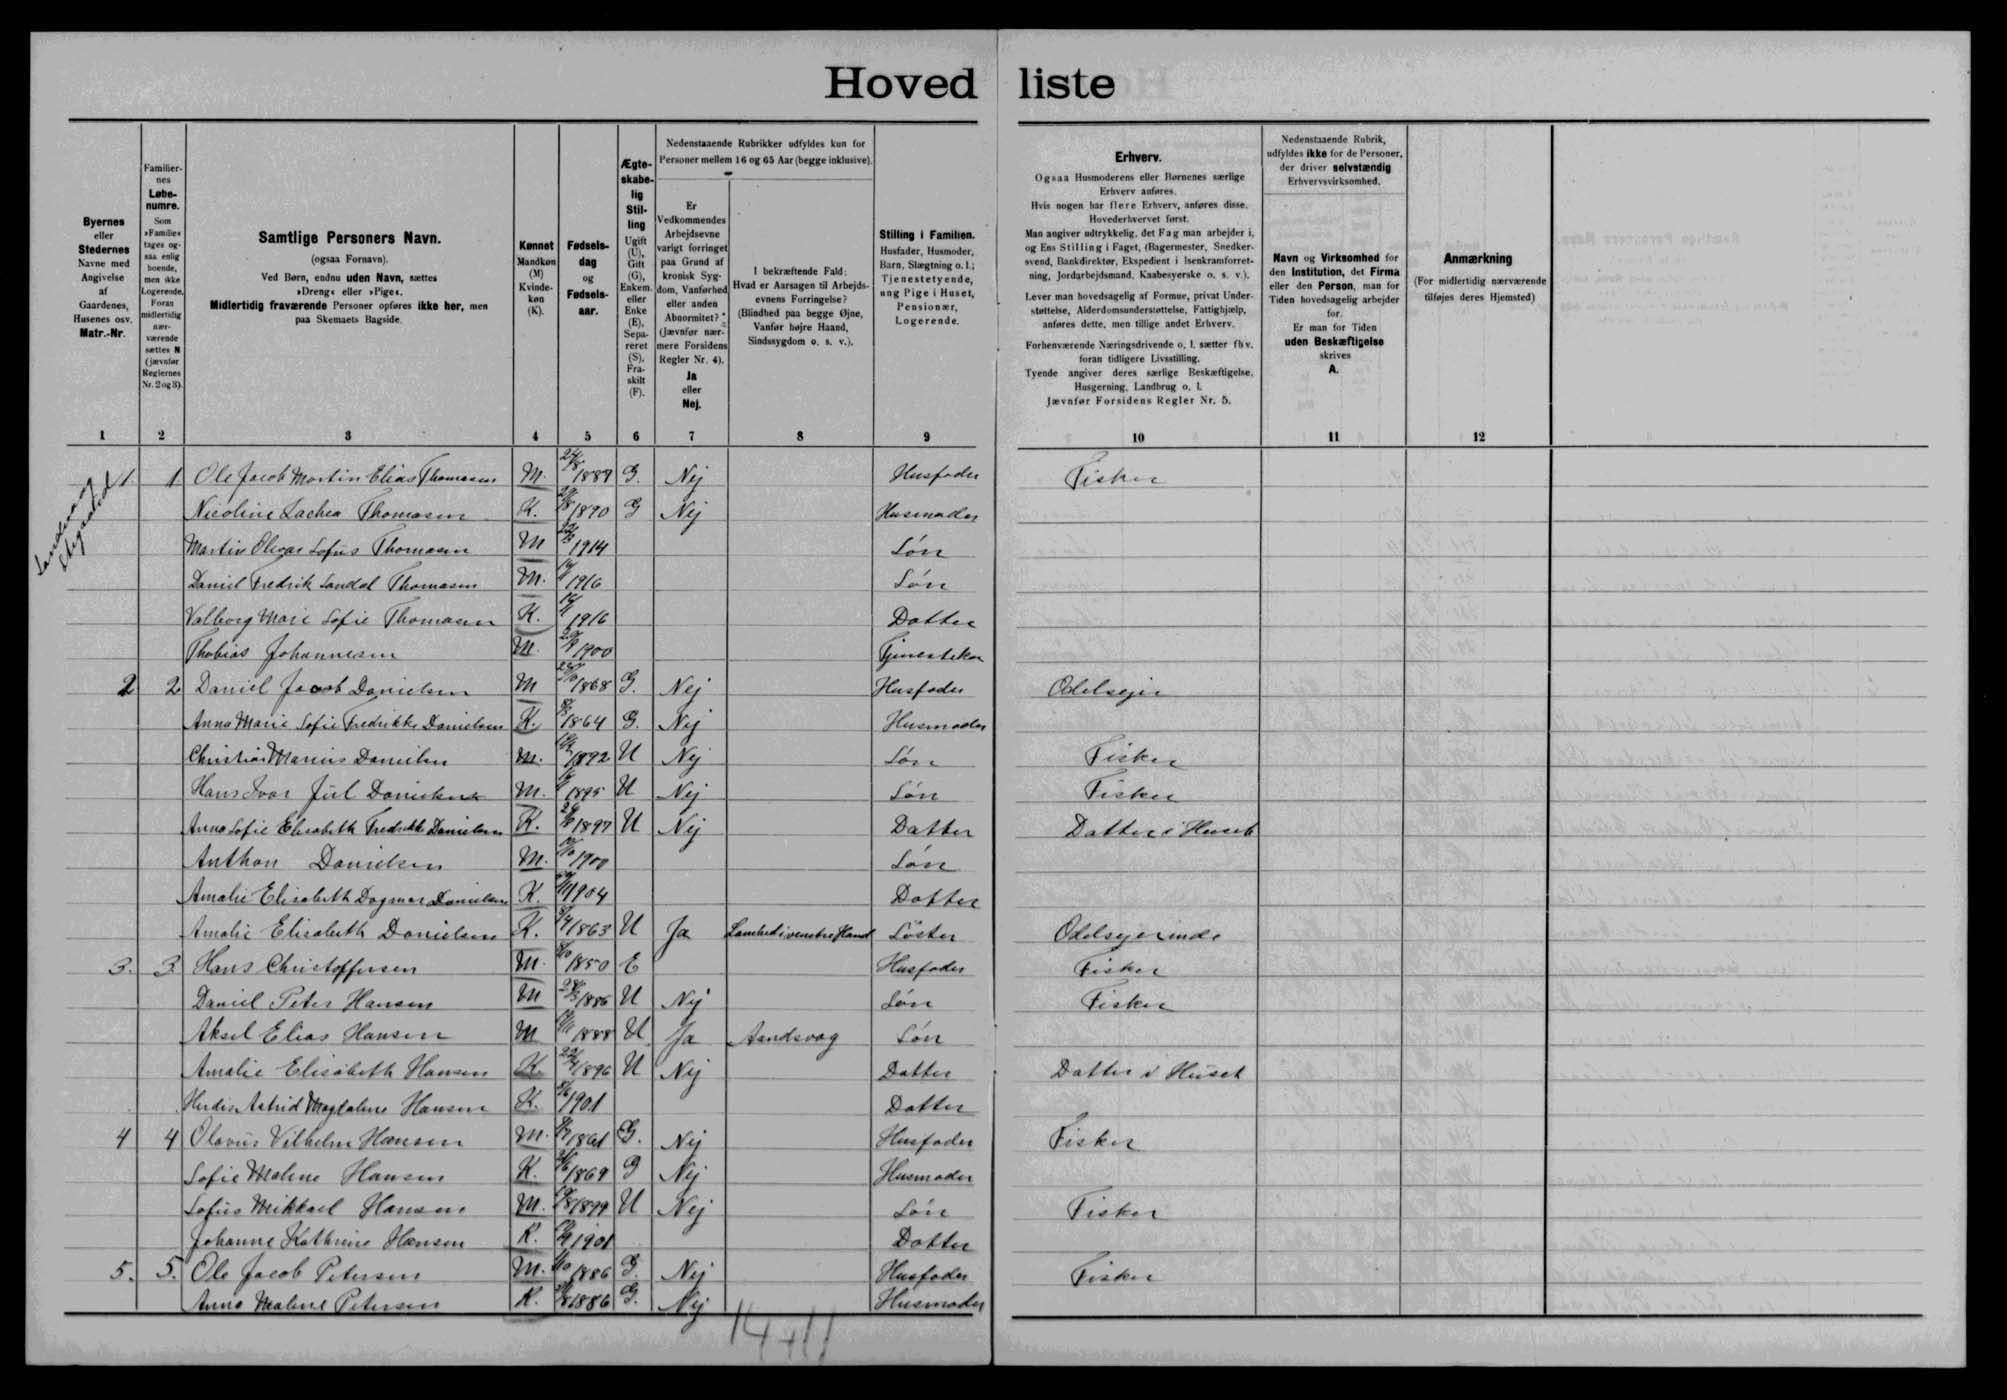 Hoved liste
Byernes
eller
Stedernes
Navne med
Angivelse
af
Gaardenes,
Husenes osv.
Matr.-Nr.
Familier-
nes
Løbe-
numre.
Som
»Familie«
tages og-
saa enlig
boende,
men ikke
Logerende.
Foran
midlertidig
nær-
værende
sættes N
(jævnfør
Reglernes
Nr. 2 og 3).
Samtlige Personers Navn.
(ogsaa Fornavn).
Ved Børn, endnu uden Navn, sættes
»Dreng« eller »Pige«.
Midlertidig fraværende Personer opføres ikke her, men
paa Skemaets Bagside.
Kønnet
Mandkøn
(M)
Kvinde-
køn
(K).
Fødsels-
dag
og
Fødsels-
aar.
Ægte-
skabe-
lig
Stil-
ling
Ugift
(U),
Gift
(G),
Enkem.
eller
Enke
(E),
Sepa-
reret
(S),
Fra-
skilt
(F).
Nedenstaaende Rubrikker udfyldes kun for
Personer mellem 16 og 65 Aar (begge inklusive).
Er
Vedkommendes
Arbejdsevne
varigt forringet
paa Grund af
kronisk Syg-
dom, Vanførhed
eller anden
Abnormitet?
(Jævnfør nær-
mere Forsidens
Regler Nr. 4).
Ja
eller
Nej.
I bekræftende Fald:
Hvad er Aarsagen til Arbejds-
evnens Forringelse?
(Blindhed paa begge Øjne,
Vanfør højre Haand,
Sindssygdom o. s. v.).
Stilling i Familien.
Husfader, Husmoder,
Barn, Slægtning o. l.;
Tjenestetyende,
ung Pige i Huset,
Pensionær,
Logerende.
Erhverv.
Ogsaa Husmoderens eller Børnenes særlige
Erhverv anføres.
Hvis nogen har flere Erhverv, anføres disse.
Hovederhvervet først.
Man angiver udtrykkelig, det Fag man arbejder i,
og Ens Stilling i Faget, (Bagermester, Snedker-
svend, Bankdirektør, Ekspedient i Isenkramforret-
ning, Jordarbejdsmand, Kaabesyerske o. s. v.).
Lever man hovedsagelig af Formue, privat Under-
støttelse, Alderdomsunderstøttelse, Fattighjælp,
anføres dette, men tillige andet Erhverv.
Forhenværende Næringsdrivende o. l. sætter fhv.
foran tidligere Livsstilling.
Tyende angiver deres særlige Beskæftigelse,
Husgerning, Landbrug o. l.
Jævnfør Forsidens Regler Nr. 5.
Nedenstaaende Rubrik,
udfyldes ikke for de Personer,
der driver selvstændig
Erhvervsvirksomhed.
Navn og Virksomhed for
den Institution, det Firma
eller den Person, man for
Tiden hovedsagelig arbejder
for.
Er man for Tiden
uden Beskæftigelse
skrives
A.
Anmærkning
(For midlertidig nærværende
tilføjes deres Hjemsted)
1 2 3 4 5 6 7 8 9 10 11 12
1 1 Ole Jacob Martin Elias Thomasen M. 1887 G. Nej Husfader Fisker
Nicoline Zachea Thomasen K. 1890 G Nej Husmoder
Martin Olivar Sofus Thomasen M 1914 Søn
Daniel Fredrik Sandal Thomasen M. 1916 Søn
Valborg Marie Sofie Thomasen K. 1916 Datter
Thobias Johannesen M. 1900 Tjenestekar
2 2 Daniel Jacob Danielsen M 1868 G. Nej Husfader Odelsejer
Anna Marie Sofie Fredrikke Danielsen K. 1864 G. Nej Husmoder
Christian Marius Danielsen M. 1892 U Nej Søn Fisker
Hans Ivar Juul Danielsen M. 1895 U Nej Søn Fisker
Anna Sofie Elisabeth Fredrikke Danielsen K. 1897 U Nej Datter Datter i Huset
Anthon Danielsen M. 1900 Søn
Amalie Elisabeth Dagmar Danielsen K. 1904 Datter
Amalie Elisabeth Danielsen K. 1863 U Ja Lamhed i venstre Haand Søster Odelsejerinde
3. 3. Hans Christoffersen M. 1850 E Husfader Fisker
Daniel Peter Hansen M 1886 U Nej Søn Fisker
Aksel Elias Hansen M 1888 U Ja Aandsvag Søn
Amalie Elisabeth Hansen K 1896 U Nej Datter Datter i Huset
Herdis Astrid Magdalene Hansen K. 1901 Datter
4 4 Olavus Vilhelm Hansen M. 1861 G. Nej Husfader Fisker
Sofie Malene Hansen K. 1869 G Nej Husmoder
Sofus Mikkael Hansen M. 1899 U Nej Søn Fisker
Johanne Kathrine Hansen K. 1901 Datter
5. 5. Ole Jacob Petersen M. 1886 G. Nej Husfader Fisker
Anna Malene Petersen K. 1886 G. Nej Husmoder
14+11